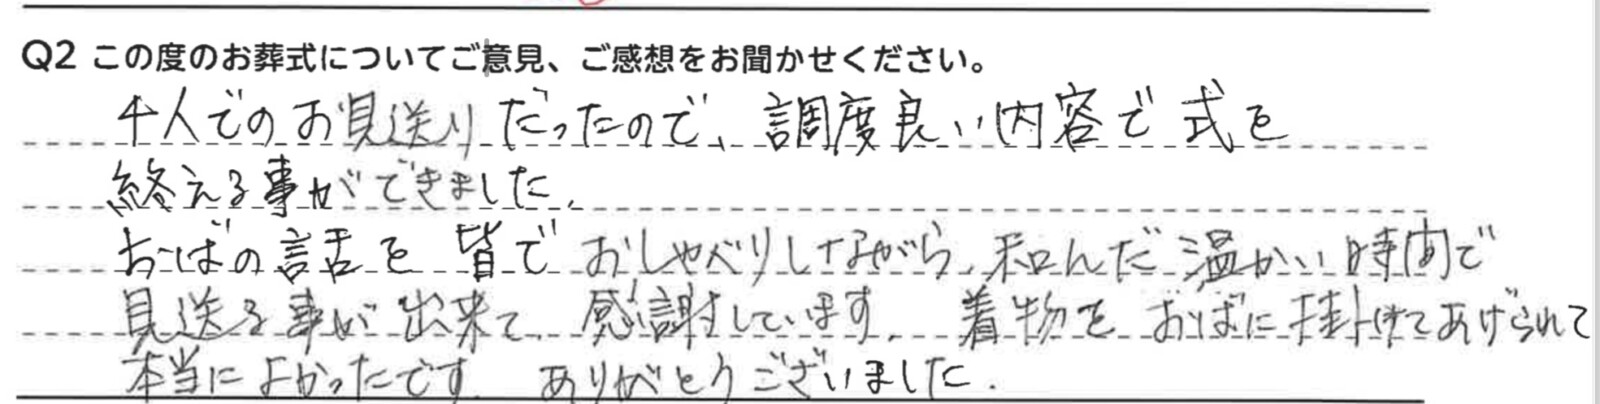 Q2 この度のお葬式についてご意見、ご感想をお聞かせください。
人でのお見送りだったので、調度良い内容で式を
終える事ができました。
おばの話を皆でおしゃべりしながら、和んだ温かい時間で
見送る事が出来て、感謝しています。着物をおばに掛けてあげられて
本当によかったです。ありがとうございました。